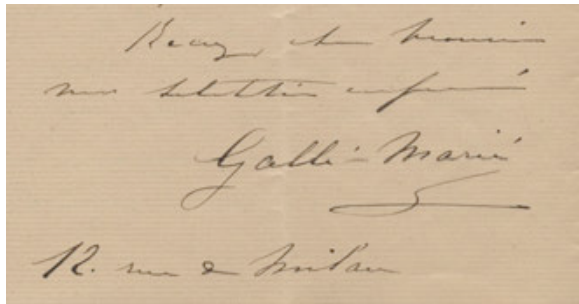 Recevez, cher Monsieur
mes salutations empressées
Galli-Marié
12. rue de Milan